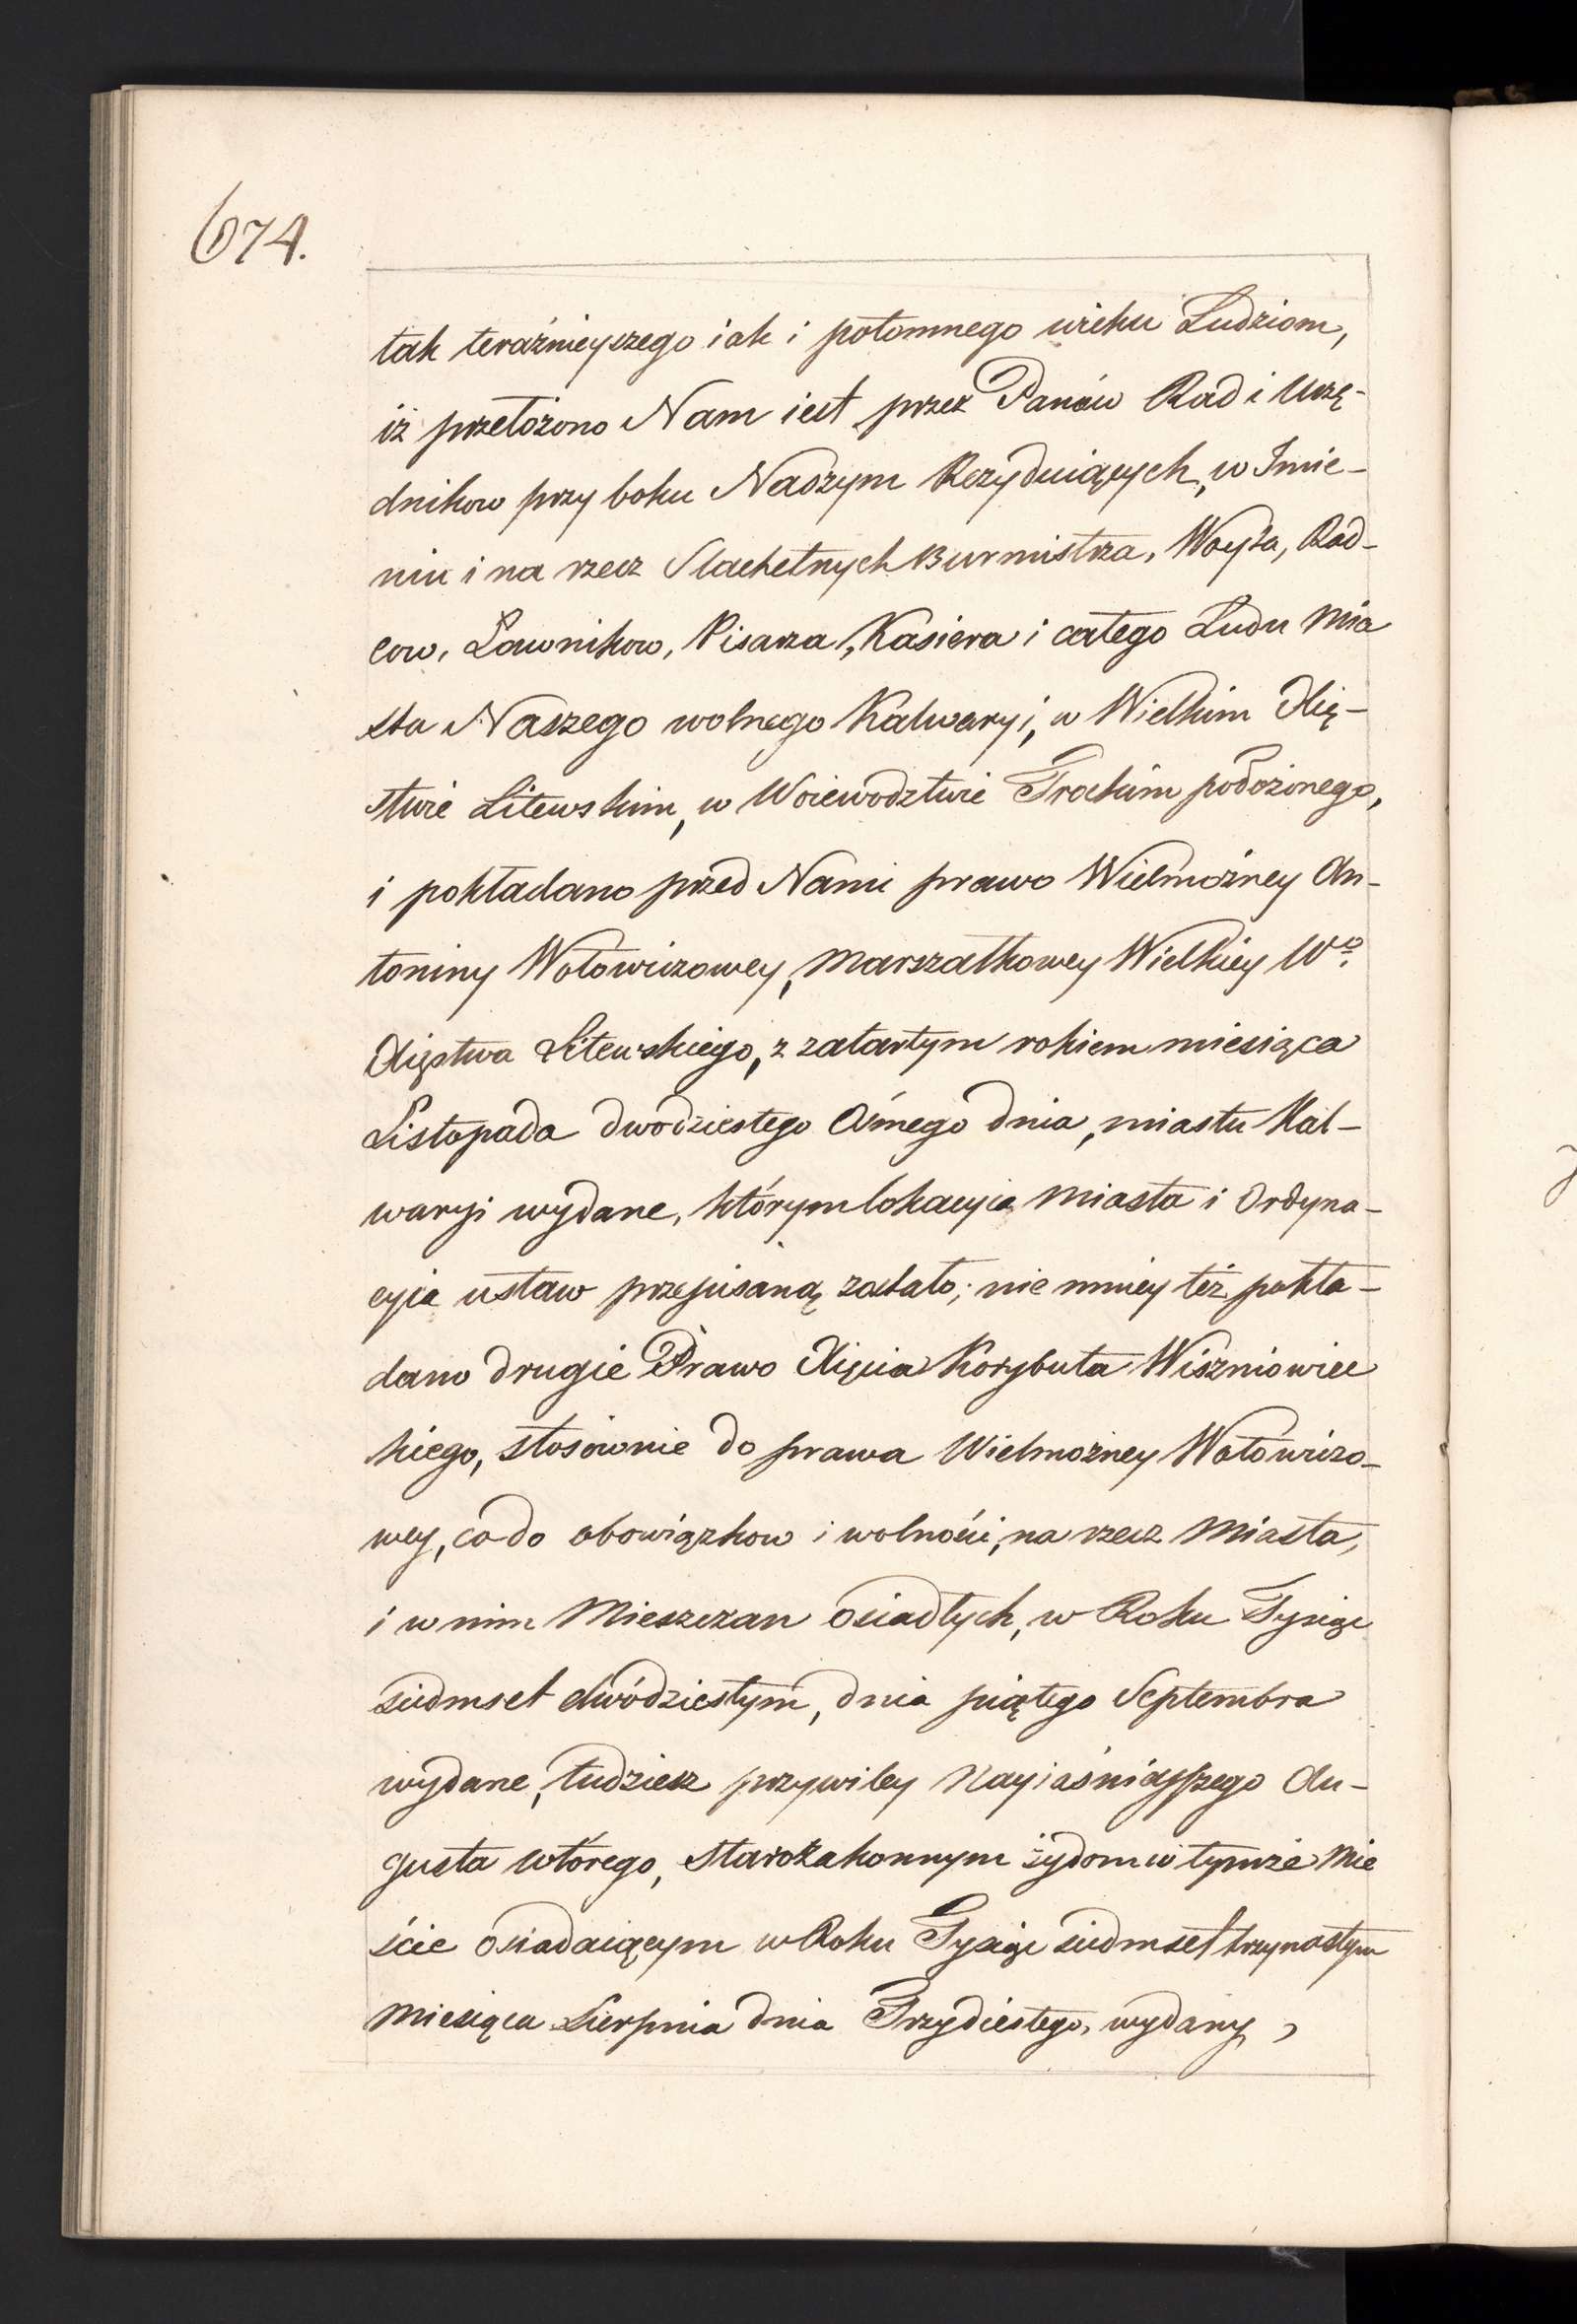 674.
tak teraźnieyszego iak i potomnego wieku Ludziom,
iż przełożono Nam iest przez Panów Rad i Urzę-
dnikow przy boku Naszym Rezyduiących, w Imie-
niu i na rzecz Slachetnych Burmistrza, Woyta, Rad-
cow, Ławnikow, Pisarza, Kasiera i całego Ludu Mia
sta Naszego wolnego Kalwaryi, w Wielkim Xię-
stwie Litewskim, w Woiewodztwie Trockim położonego,
i pokładano przed Nami prawo Wielmożney An-
toniny Wołowiczowey, Marszałkowey Wielkiey Wo.
Xięstwa Litewskiego, z zatartym rokiem miesiąca
Listopada dwodziestego Osmego dnia, miastu Kal-
waryi wydane, którym lokacyia Miasta i Ordyna-
cyia ustaw przepisaną zostało; nie mniey też pokła-
dano drugie Prawo Xięcia Korybuta Wiszniowiec
kiego, stosownie do prawa Wielmożney Wołowiczo-
wey, co do obowiązkow i wolności, na rzecz Miasta,
i w nim Mieszczan osiadłych, w Roku Tysiąc
siedmset dwódziestym, dnia piątego Septembra
wydane, tudziesz przywiley Nayiaśnieyszego Au-
gusta wtórego, Starozakonnym żydom w tymże Mie
ście osiadaiącym w Roku Tysiąc siedmset trzynastym
Miesiąca Sierpnia dnia Trzydiestego, wydany,